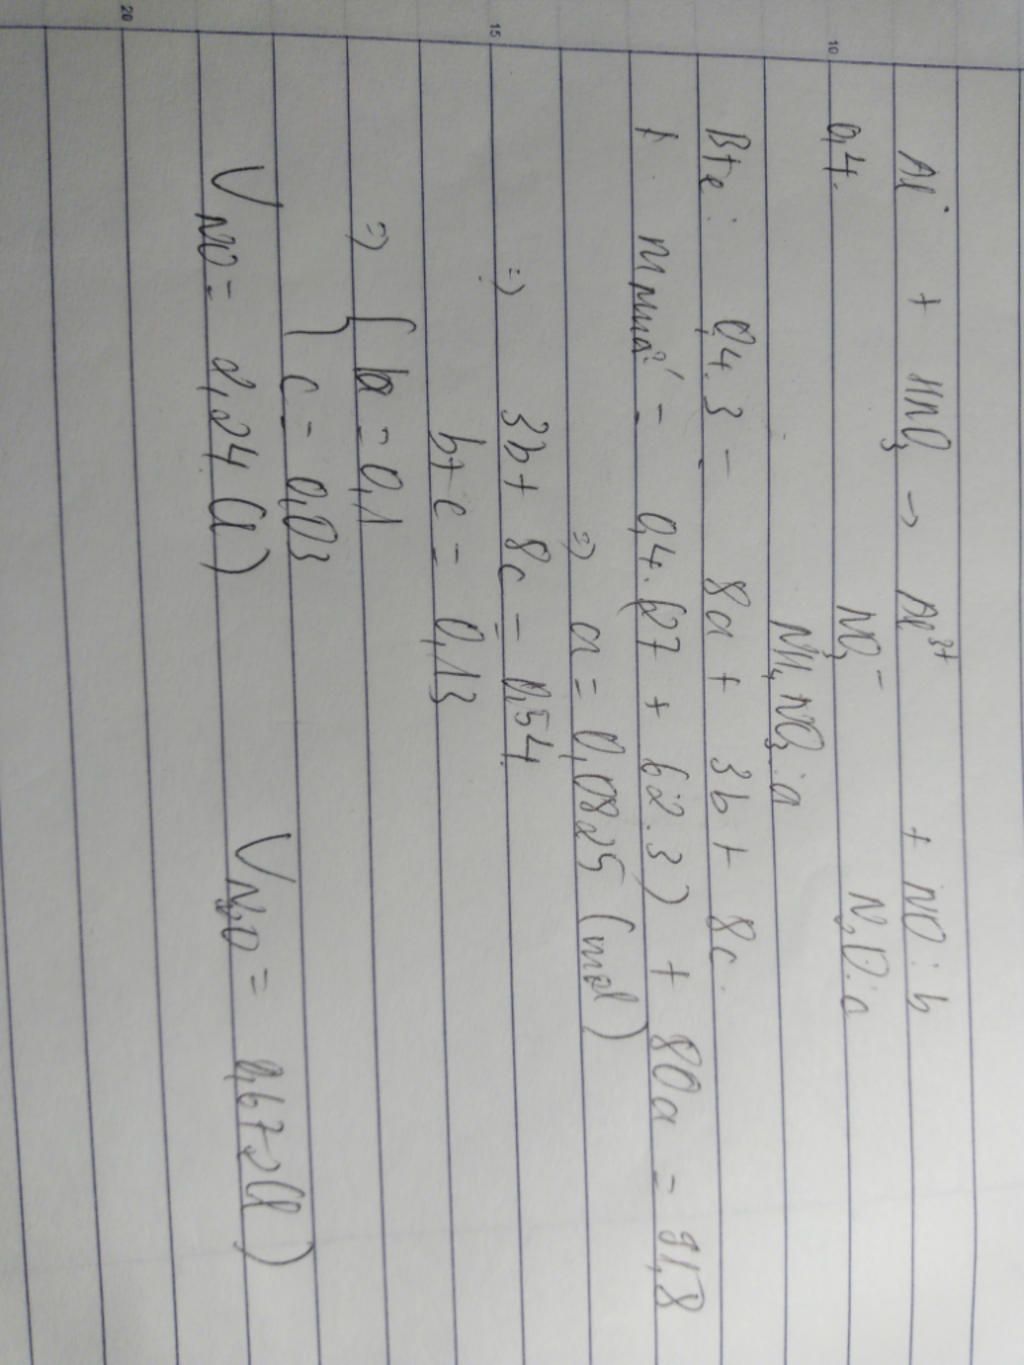 Al + HNO3 → Al3+ + NO : b
0,4. NO3- N2O : c
NH4NO3 : a
Bte : 0,4.3 = 8a + 3b + 8c.
m muối = 0,4.(27 + 62.3) + 80a = 91,8
=> a = 0,0825 (mol)
=> 3b + 8c = 0,54
b + c = 0,13
=> { b = 0,1
c = 0,03
VNO = 2,24 (l) VN2O = 0,672(l)
10
15
20